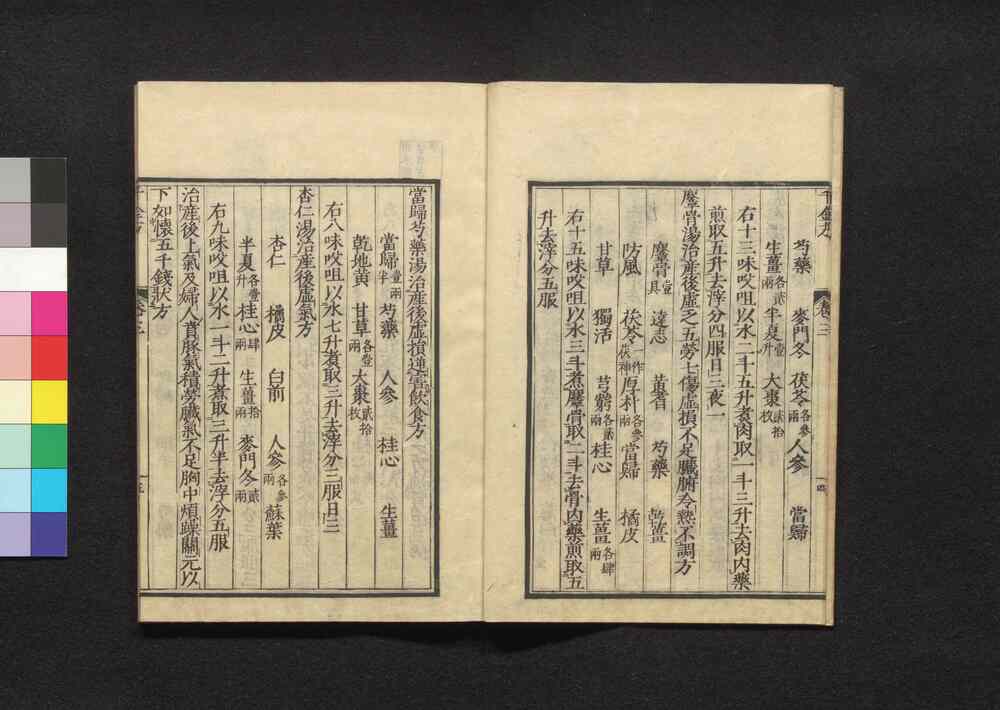 芍藥 麥門冬 茯苓各參兩 人參 當歸
生薑各貳兩 半夏壹升 大棗貳拾枚
右十三味㕮咀以水二斗五升煮肉取一斗三升去肉内藥
煎取五升去滓分四服日三夜一
麞骨湯治産後虛乏五勞七傷虛損不足臟腑冷熱不調方
麞骨壹具 遠志 黃耆 芍藥
防風 茯苓一作茯神 厚朴各參兩 當歸 橘皮
甘草 獨活 芎藭各貳兩 桂心 生薑各肆兩
右十五味㕮咀以水三斗煮麞骨取二斗去骨内藥煎取五
升去滓分五服
卷三
當歸芍藥湯治産後虛損逆害飲食方
當歸壹兩半 芍藥 人參 桂心 生薑
乾地黃 甘草各壹兩 大棗貳拾枚
右八味㕮咀以水七升煮取三升去滓分三服日三
杏仁湯治産後虛氣方
杏仁 橘皮 白前 人參各參兩 蘇葉
半夏各壹升 桂心肆兩 生薑拾兩 麥門冬貳兩
右九味㕮咀以水一斗二升煮取三升半去滓分五服
治産後上氣及婦人賁豚氣積勞臟氣不足胸中煩躁關元以
下如懷五千錢狀方